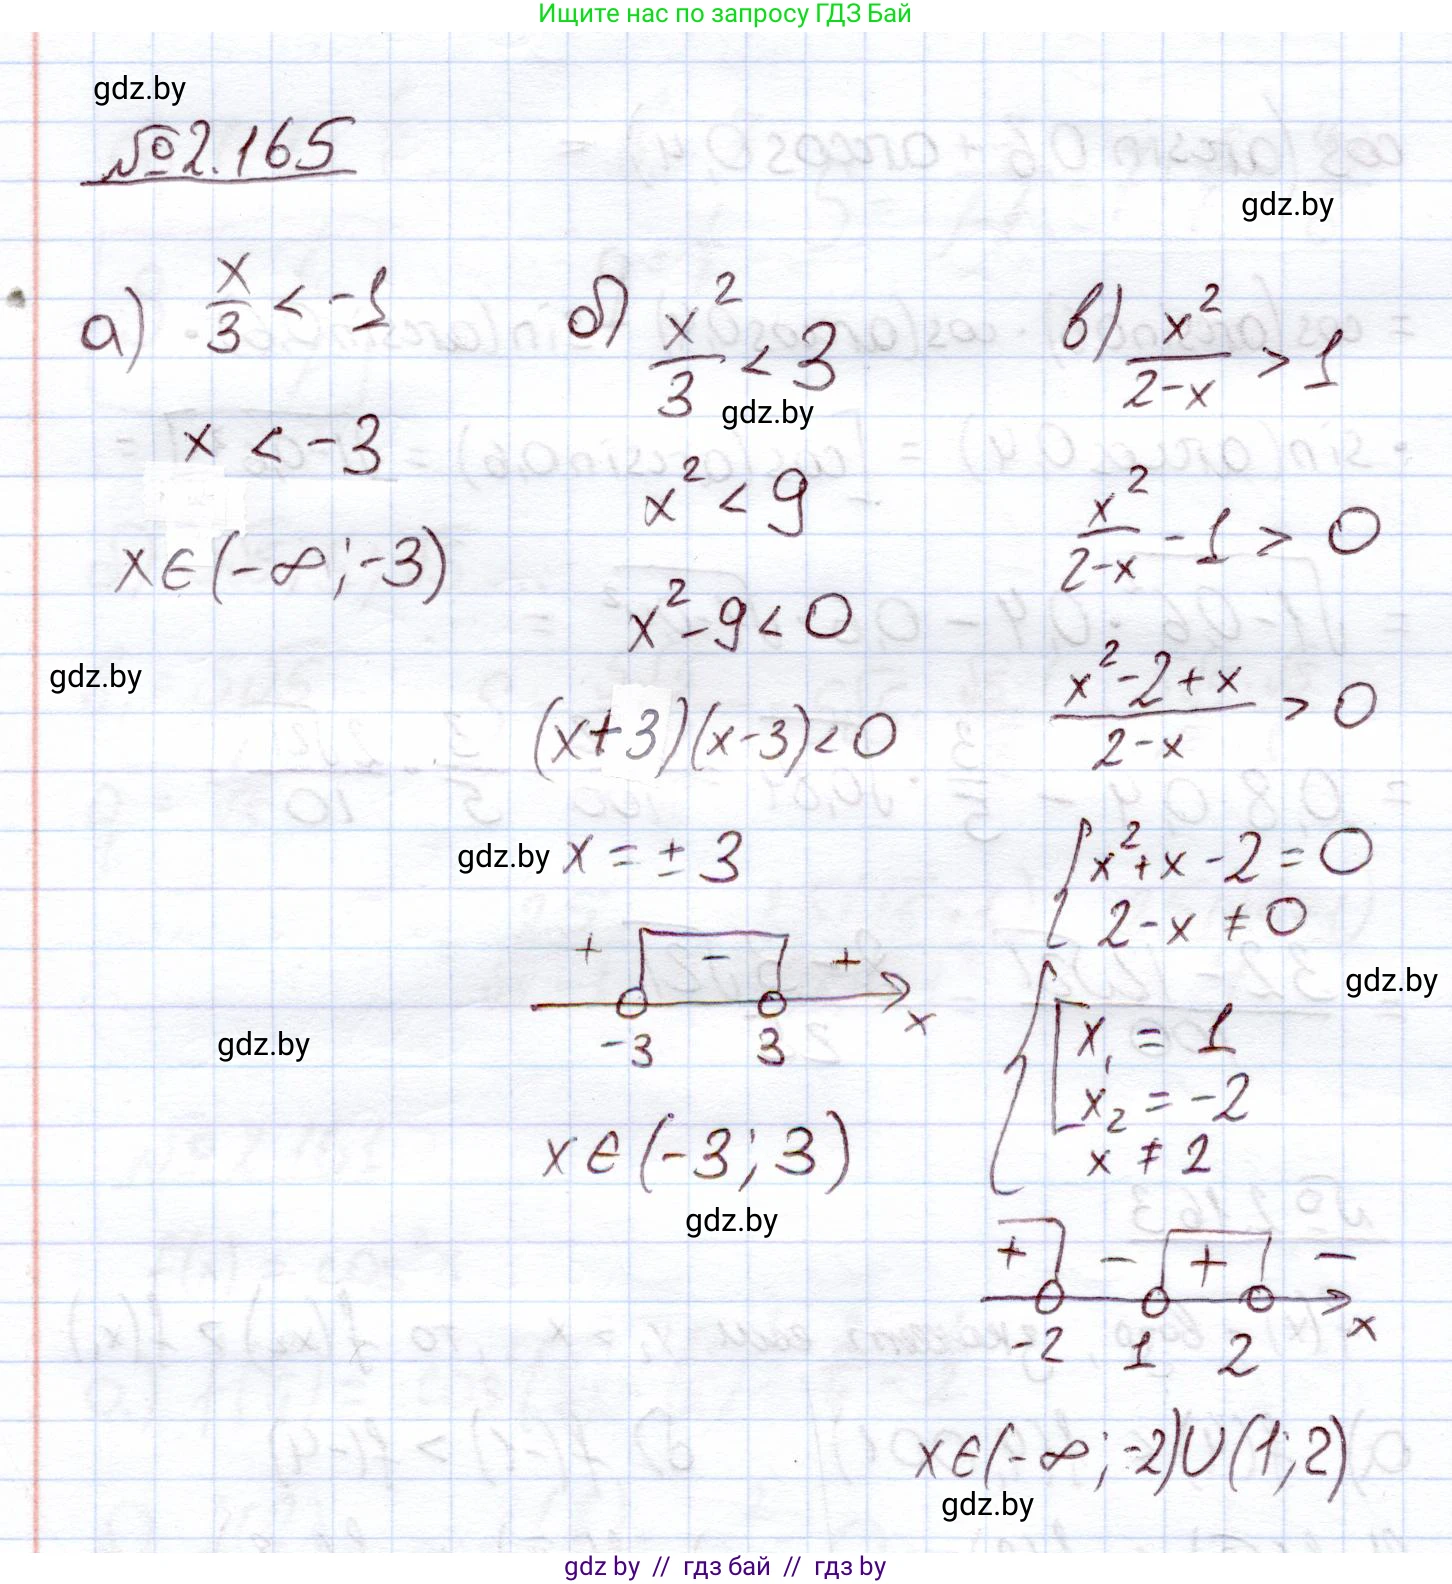 Ищите нас по запросу ГДЗ Бай
gdz.by
№2.165
gdz.by
а) x/3 < -1
x < -3
x ∈ (-∞; -3)
gdz.by
gdz.by
б) x²/3 < 3
gdz.by
x² < 9
x² - 9 < 0
(x+3)(x-3) < 0
gdz.by
x = ± 3
+ - +
-3 3 x
x ∈ (-3; 3)
gdz.by
в) x²/(2-x) > 1
x²/(2-x) - 1 > 0
(x² - 2 + x)/(2-x) > 0
{ x² + x - 2 = 0
2 - x ≠ 0
gdz.by
{ [ x₁ = 1
x₂ = -2
x ≠ 2
+ - + -
-2 1 2 x
x ∈ (-∞; -2) ∪ (1; 2)
gdz.by
gdz by // гдз бай // гдз by